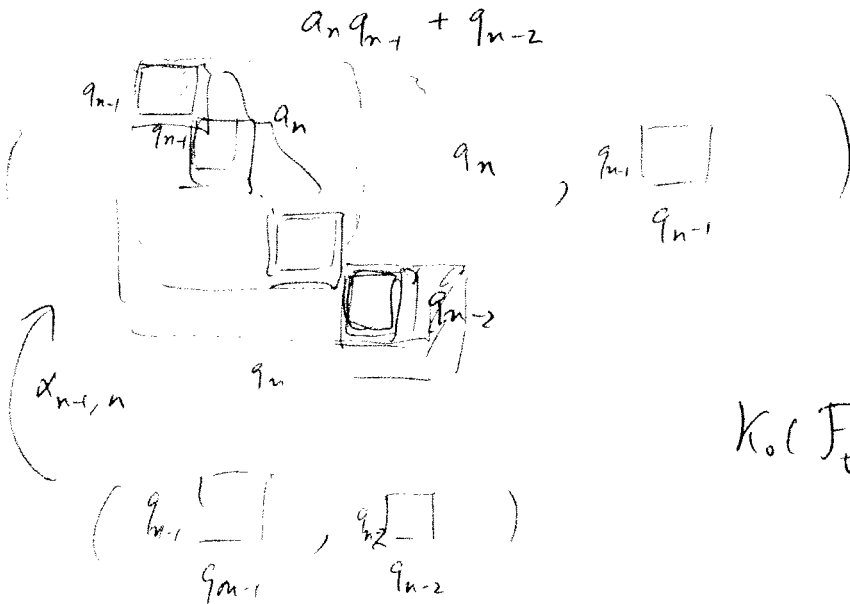 a_n q_{n-1} + q_{n-2}
q_{n-1}
q_{n-1} a_n
( q_n , q_{n-1} )
q_{n-1}
q_{n-2}
q_n
α_{n-1, n}
K_0 (
( q_{n-1} , q_{n-2} )
q_{n-1} q_{n-2}